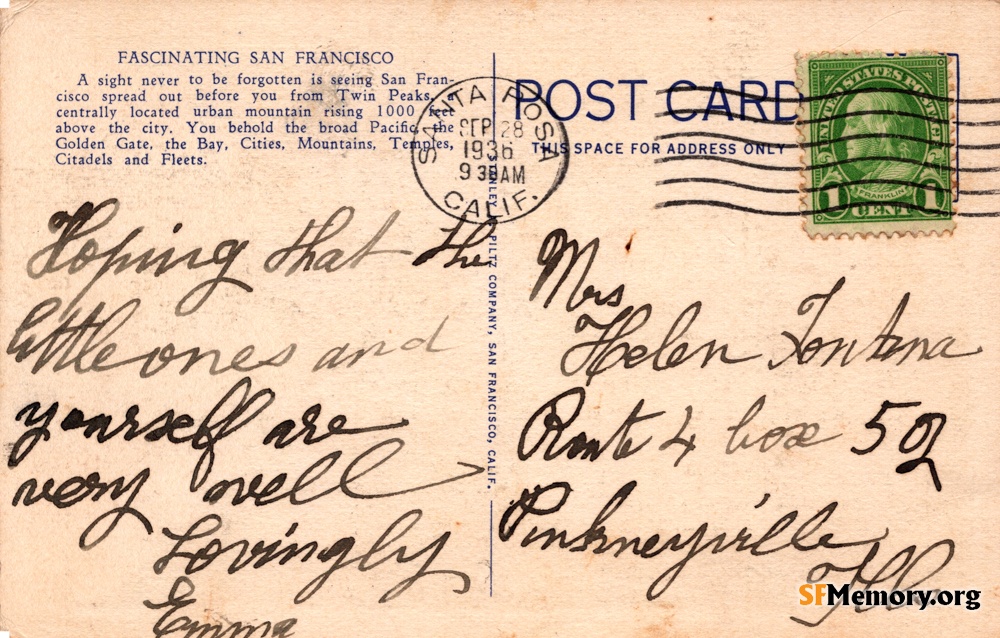 FASCINATING SAN FRANCISCO
A sight never to be forgotten is seeing San Fran-
cisco spread out before you from Twin Peaks,
centrally located urban mountain rising 1000 feet
above the city. You behold the broad Pacific, the
Golden Gate, the Bay, Cities, Mountains, Temples,
Citadels and Fleets.
SANTA ROSA
SEP 28
1936
9 30 AM
CALIF.
POST CARD
THIS SPACE FOR ADDRESS ONLY
UNITED STATES POSTAGE
FRANKLIN
1 CENT 1
STANLEY A. PILTZ COMPANY, SAN FRANCISCO, CALIF.
Hoping that the
little ones and
yourself are
very well
Lovingly
Emma
Mrs
Helen Fontena
Route 4 box 502
Pinkneyville
Ill
SFMemory.org